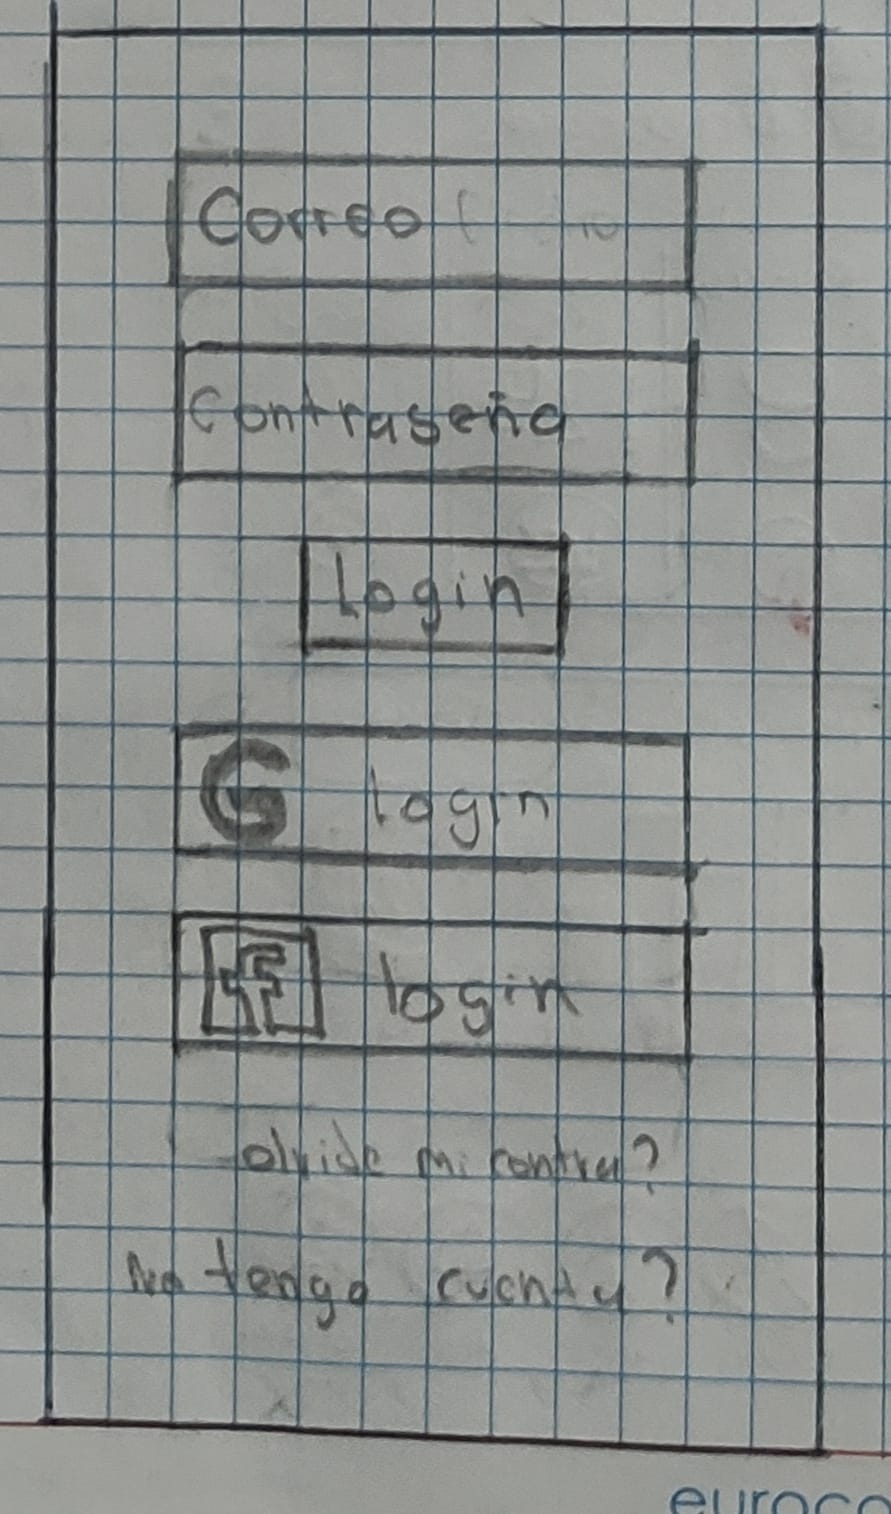 Correo
Contraseña
Login
G login
f login
olvide mi contra?
No tengo cuenta?
euroco